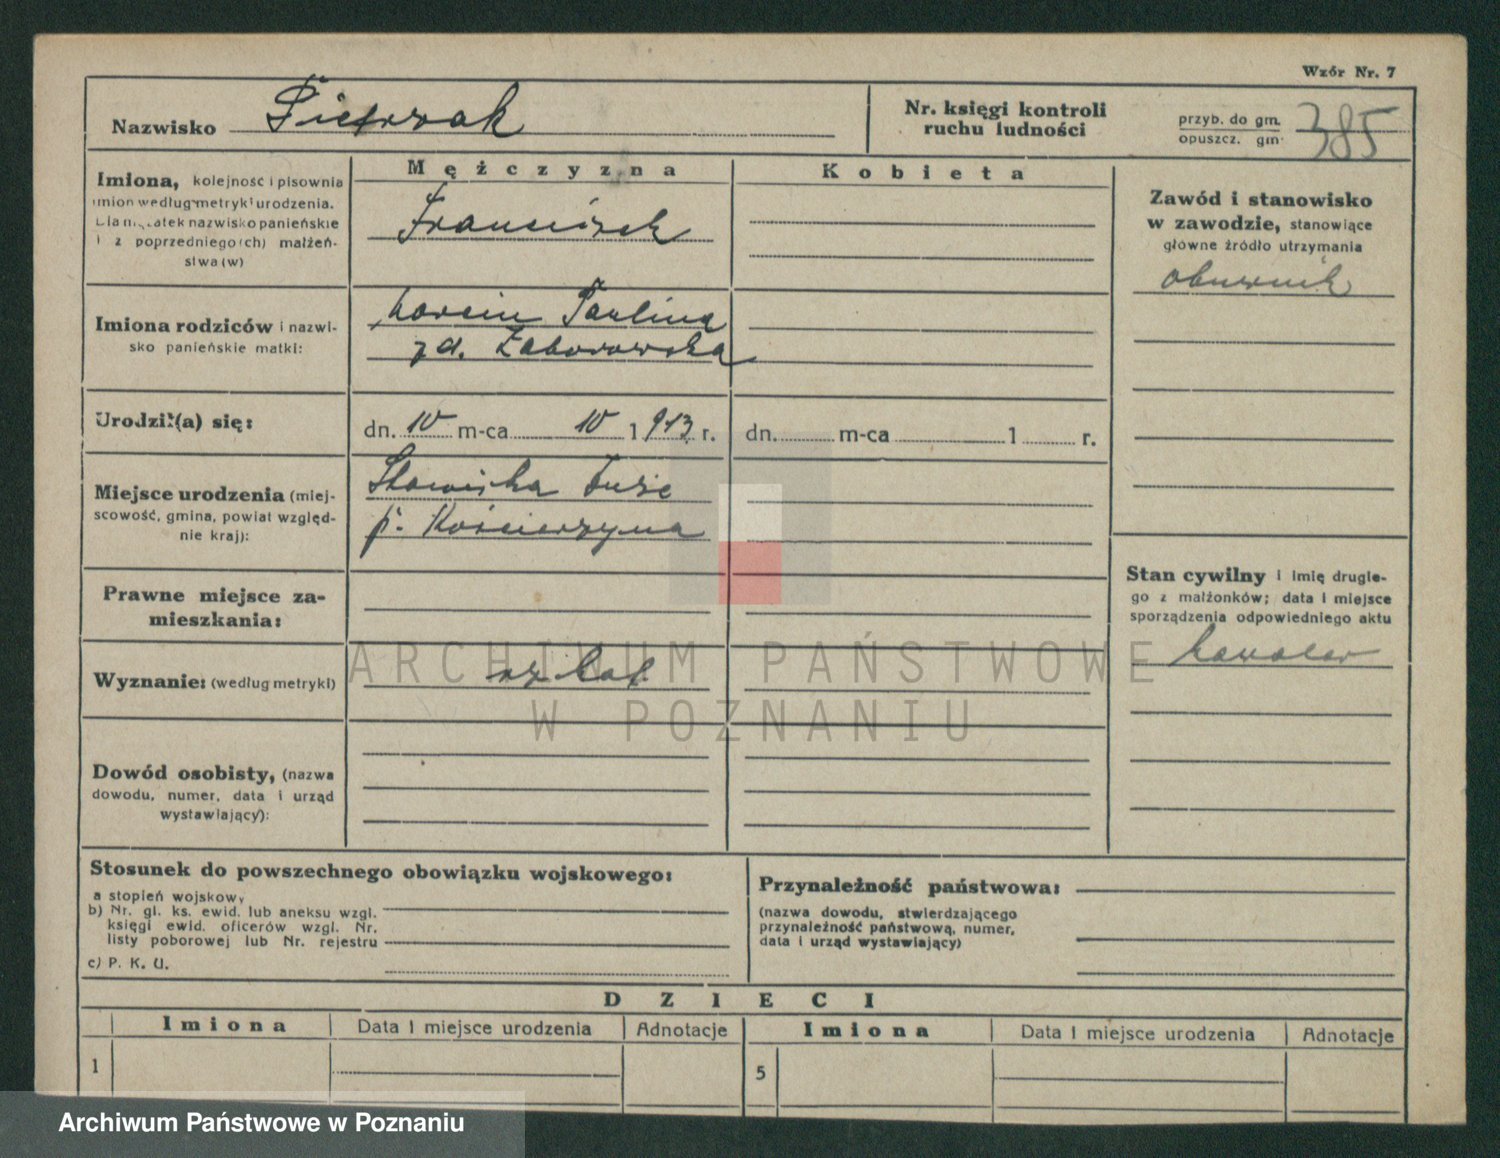 Wzór Nr. 7
Nazwisko Pietrzak
Nr. księgi kontroli
ruchu ludności
przyb. do gm.
opuszcz. gm.
385
Mężczyzna
Kobieta
Imiona, kolejność i pisownia
imion według metryki urodzenia.
Dla mężatek nazwisko panieńskie
i z poprzedniego(ch) małżeń-
stwa (w)
Franciszek
Zawód i stanowisko
w zawodzie, stanowiące
główne źródło utrzymania
Imiona rodziców i nazwi-
sko panieńskie matki:
Marcin Paulina
zd. Zaborowska
Urodził(a) się:
dn. 10 m-ca 10 1913 r.
dn. m-ca 1 r.
Miejsce urodzenia (miej-
scowość, gmina, powiat względ-
nie kraj):
p. Kościerzyna
Stan cywilny i imię drugie-
go z małżonków; data i miejsce
sporządzenia odpowiedniego aktu
kawaler
Prawne miejsce za-
mieszkania:
Wyznanie: (według metryki)
rz kat
ARCHIWUM PAŃSTWOWE
W POZNANIU
Dowód osobisty, (nazwa
dowodu, numer, data i urząd
wystawiający):
Stosunek do powszechnego obowiązku wojskowego:
a stopień wojskowy
b) Nr. gl. ks. ewid. lub aneksu wzgl.
księgi ewid. oficerów wzgl. Nr.
listy poborowej lub Nr. rejestru
c) P. K. U.
Przynależność państwowa:
(nazwa dowodu, stwierdzającego
przynależność państwową, numer,
data i urząd wystawiający)
DZIECI
Imiona Data i miejsce urodzenia Adnotacje Imiona Data i miejsce urodzenia Adnotacje
1 5
Archiwum Państwowe w Poznaniu